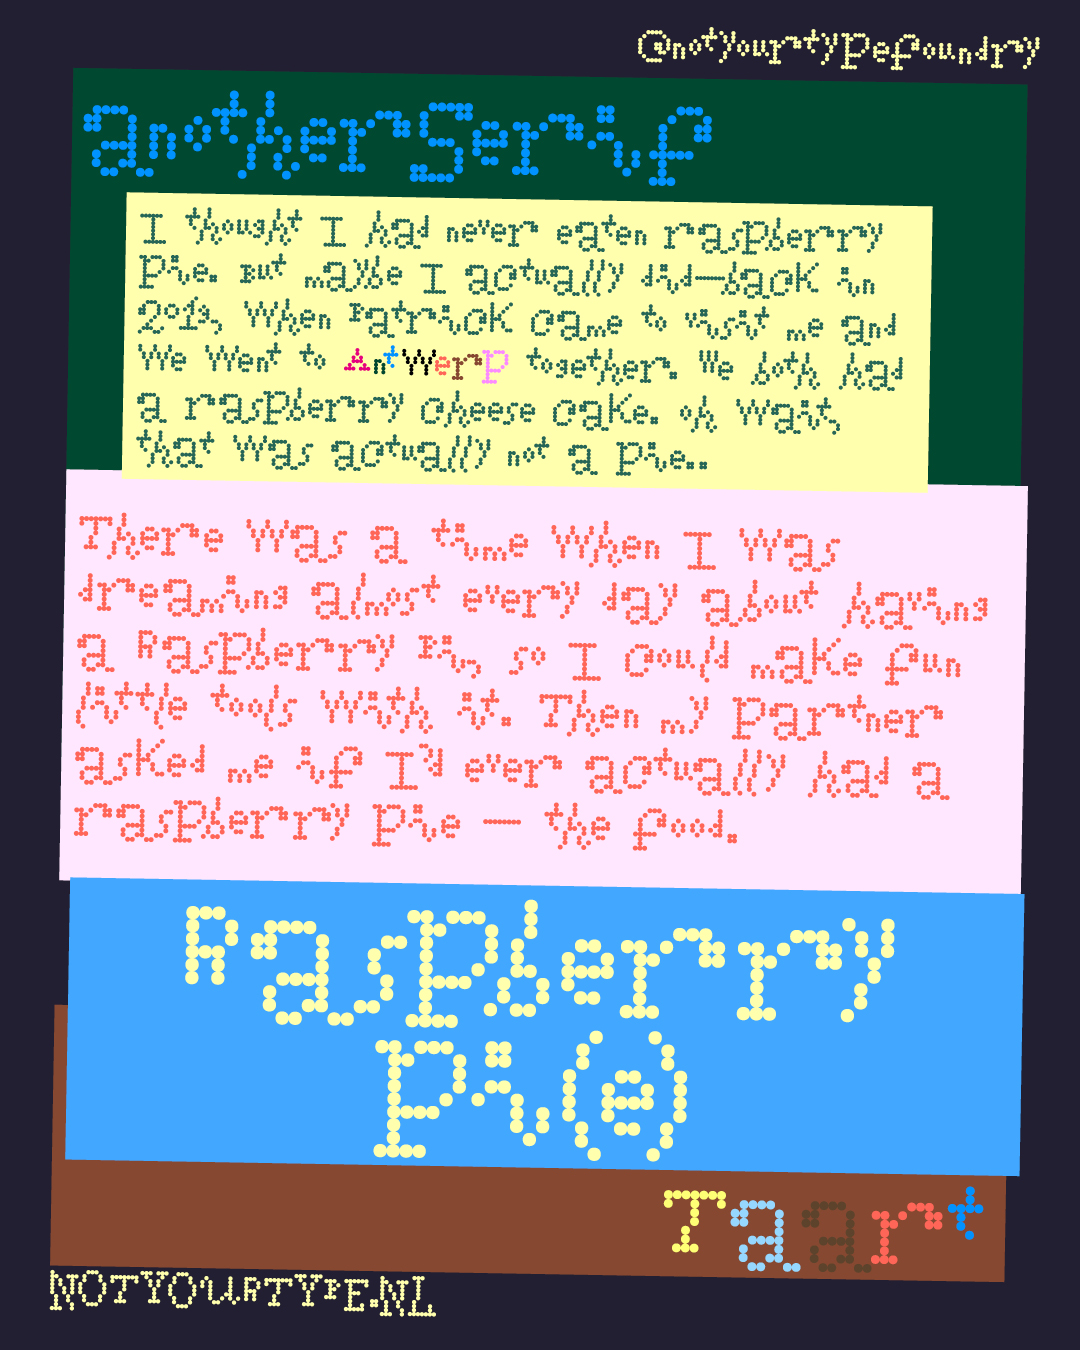 @notyourtypefoundry
anotherSerif
I thought I had never eaten raspberry
pie. But maybe I actually did—back in
2012, when Patrick came to visit me and
we went to Antwerp together. We both had
a raspberry cheese cake. oh wait,
that was actually not a pie..
There was a time when I was
dreaming almost every day about having
a Raspberry Pi, so I could make fun
little tools with it. Then my partner
asked me if I'd ever actually had a
raspberry pie — the food.
Raspberry
pi(e)
Taart
NOTYOURTYPE.NL